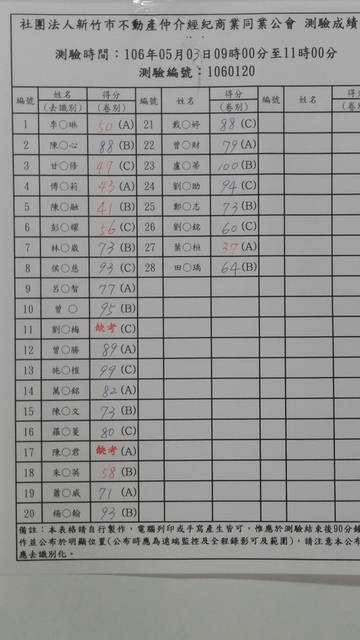 社團法人新竹市不動產仲介經紀商業同業公會 測驗成績
測驗時間：106年05月03日09時00分至11時00分
測驗編號：1060120
編號 姓名(去識別) 得分(卷別) 編號 姓名 得分(卷別) 編號 姓名 得分
1 李○琳 50 (A) 21 戴○婷 88 (C)
2 陳○心 88 (B) 22 曾○財 79 (A)
3 甘○修 49 (C) 23 盧○蓉 100 (B)
4 傅○莉 43 (A) 24 劉○助 94 (C)
5 陳○融 41 (B) 25 鄭○志 73 (B)
6 彭○耀 56 (C) 26 劉○銘 60 (C)
7 林○崴 73 (B) 27 葉○桓 37 (A)
8 侯○慈 93 (C) 28 田○瑀 64 (B)
9 呂○智 77 (A)
10 曾○ 95 (B)
11 劉○梅 缺考 (C)
12 曾○勝 89 (A)
13 施○愷 99 (C)
14 萬○銘 82 (A)
15 陳○文 73 (B)
16 羅○蔓 80 (C)
17 陳○君 缺考 (A)
18 朱○英 58 (B)
19 蕭○威 71 (A)
20 楊○翰 93 (B)
備註：本表格請自行製作，電腦列印或手寫產生皆可，惟應於測驗結束後90分鐘
作並公布於明顯位置(公布時應為遠端監控及全程錄影可及範圍)，請注意本公布
應去識別化。